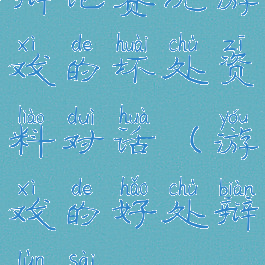 xì de huài chù zī
戏的坏处资
liào duì huà yóu
料对话（游
xì de hǎo chù biàn
戏的好处辩
lùn sài